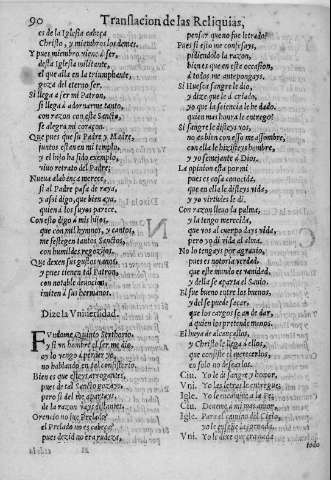 90 Translacion de las Reliquias,
es de la Iglesia cabeça
Christo, y miembros los demas.
Y pues miembro viene à ser,
desta Iglesia militante,
el que alla en la triumphante,
goza del eterno ser.
Si llega à ser mi Patron,
si llega à adornarme tanto,
con razon con este Sancto,
se alegra mi coraçon.
Y pues que su Padre y Madre,
juntos estan en mi templo,
y el hijo ha sido exemplo,
viuo retrato del Padre;
Nueua alabança merece,
si al Padre passa de raya,
y assi digo, que bien aya,
quien à los suyos parece.
Con esto digo à mis hijos,
que con mil hymnos, y cantos,
me festegen tantos Sanctos,
con humildes regozijos.
Que dexen sus gustos vanos,
y pues tienen tal Patron,
con notable deuocion,
imiten à sus hermanos.
Dize la Vniuersidad.
Fundome Quinto Sertorio,
y si vn hombre el ser me dio,
oy lo vengo à perder yo,
no hablando en tal consistorio.
Bien es que elleys arrogantes,
pues de tal Sancto gozays,
pero si del me apartays,
de la razon vays distantes.
Orencio no fue Perlado?
el Prelado no es cabeça?
pues dezid no era rudeza,
pensar que no fue letrado?
Pues si esto me confessays,
pidiendolo la razon,
bien es que en esta occasion,
à todos me antepongays.
Si Huesca sangre le dio,
y dize que le à criado,
yo que la sciencia le he dado.
quien mas honra le entrego?
Si sangre le disteys vos,
no es bien con esso me assombre,
con ella le hizisteys hombre,
y yo semejante à Dios.
La opinion esta por mi
pues es cosa conocida,
que en ella le disteys vida,
y yo virtudes le di.
Con razon lleuo la palma,
y la tengo merecida,
que vos al cuerpo days vida,
pero yo di vida al alma.
No lo tengays por agrauio,
pues es notoria verdad,
que este mundo es vanidad,
y della se aparta el Sabio.
El fue bueno entre los buenos,
y del se puede sacar,
que los cargos se an de dar,
à quien los pretende menos.
El huya de alcançallos,
y Christo le llega à ellos,
que consiste el merecerlos,
en solo no dessearlos.
Ciu. Yo le di sangre y honor,
Vni. Yo le di letras le entregue,
Igle. Yo le encamine a la Fe,
Ciu. Deueme à mi mas amor,
Igle. Para el camino del Cielo,
yo le enseñe la jornada,
Vni. Yo le dixe que
todo